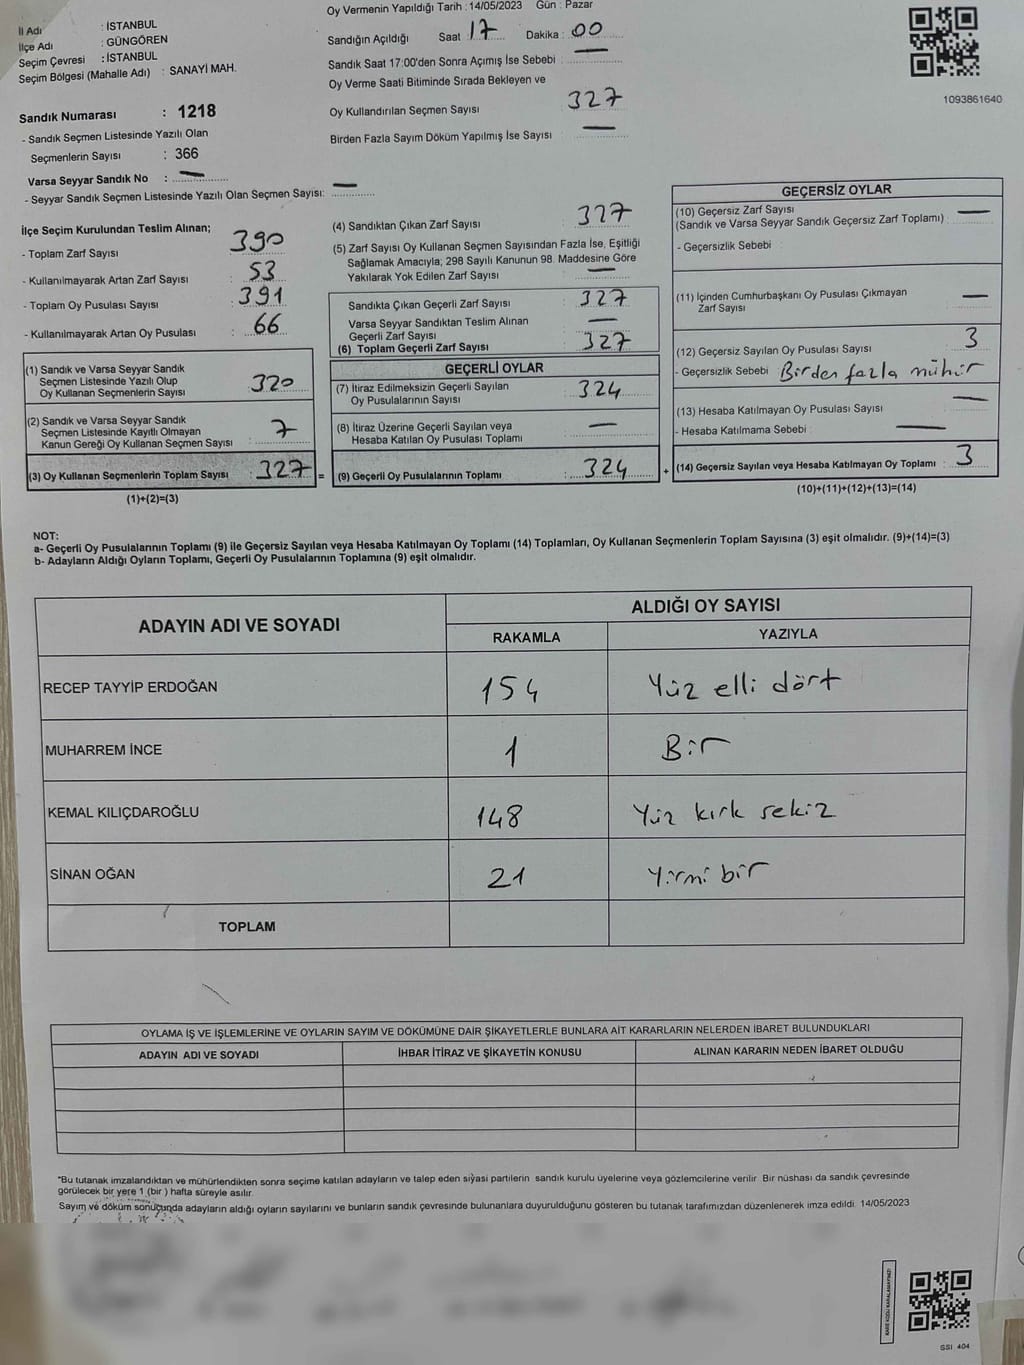 İl Adı : İSTANBUL
İlçe Adı : GÜNGÖREN
Seçim Çevresi : İSTANBUL
Seçim Bölgesi (Mahalle Adı) : SANAYİ MAH.
Sandık Numarası : 1218
- Sandık Seçmen Listesinde Yazılı Olan
Seçmenlerin Sayısı : 366
Varsa Seyyar Sandık No : —
- Seyyar Sandık Seçmen Listesinde Yazılı Olan Seçmen Sayısı: —
Oy Vermenin Yapıldığı Tarih : 14/05/2023 Gün : Pazar
Sandığın Açıldığı Saat : 17 Dakika : 00
Sandık Saat 17:00'den Sonra Açımış İse Sebebi : —
Oy Verme Saati Bitiminde Sırada Bekleyen ve
Oy Kullandırılan Seçmen Sayısı : 327
Birden Fazla Sayım Döküm Yapılmış İse Sayısı : —
1093861640
İlçe Seçim Kurulundan Teslim Alınan;
- Toplam Zarf Sayısı : 390
- Kullanılmayarak Artan Zarf Sayısı : 53
- Toplam Oy Pusulası Sayısı : 391
- Kullanılmayarak Artan Oy Pusulası : 66
(1) Sandık ve Varsa Seyyar Sandık
Seçmen Listesinde Yazılı Olup
Oy Kullanan Seçmenlerin Sayısı : 320
(2) Sandık ve Varsa Seyyar Sandık
Seçmen Listesinde Kayıtlı Olmayan
Kanun Gereği Oy Kullanan Seçmen Sayısı : 7
(3) Oy Kullanan Seçmenlerin Toplam Sayısı : 327 =
(1)+(2)=(3)
(4) Sandıktan Çıkan Zarf Sayısı : 327
(5) Zarf Sayısı Oy Kullanan Seçmen Sayısından Fazla İse, Eşitliği
Sağlamak Amacıyla; 298 Sayılı Kanunun 98. Maddesine Göre
Yakılarak Yok Edilen Zarf Sayısı : —
Sandıkta Çıkan Geçerli Zarf Sayısı : 327
Varsa Seyyar Sandıktan Teslim Alınan
Geçerli Zarf Sayısı : —
(6) Toplam Geçerli Zarf Sayısı : 327
GEÇERLİ OYLAR
(7) İtiraz Edilmeksizin Geçerli Sayılan
Oy Pusulalarının Sayısı : 324
(8) İtiraz Üzerine Geçerli Sayılan veya
Hesaba Katılan Oy Pusulası Toplamı : —
(9) Geçerli Oy Pusulalarının Toplamı : 324 +
GEÇERSİZ OYLAR
(10) Geçersiz Zarf Sayısı
(Sandık ve Varsa Seyyar Sandık Geçersiz Zarf Toplamı) : —
- Geçersizlik Sebebi :
(11) İçinden Cumhurbaşkanı Oy Pusulası Çıkmayan
Zarf Sayısı : —
(12) Geçersiz Sayılan Oy Pusulası Sayısı : 3
- Geçersizlik Sebebi : Birden fazla mühür
(13) Hesaba Katılmayan Oy Pusulası Sayısı : —
- Hesaba Katılmama Sebebi : —
(14) Geçersiz Sayılan veya Hesaba Katılmayan Oy Toplamı : 3
(10)+(11)+(12)+(13)=(14)
NOT:
a- Geçerli Oy Pusulalarının Toplamı (9) ile Geçersiz Sayılan veya Hesaba Katılmayan Oy Toplamı (14) Toplamları, Oy Kullanan Seçmenlerin Toplam Sayısına (3) eşit olmalıdır. (9)+(14)=(3)
b- Adayların Aldığı Oyların Toplamı, Geçerli Oy Pusulalarının Toplamına (9) eşit olmalıdır.
ADAYIN ADI VE SOYADI ALDIĞI OY SAYISI
RAKAMLA YAZIYLA
RECEP TAYYİP ERDOĞAN 154 Yüz elli dört
MUHARREM İNCE 1 Bir
KEMAL KILIÇDAROĞLU 148 Yüz kırk sekiz
SİNAN OĞAN 21 Yirmi bir
TOPLAM
OYLAMA İŞ VE İŞLEMLERİNE VE OYLARIN SAYIM VE DÖKÜMÜNE DAİR ŞİKAYETLERLE BUNLARA AİT KARARLARIN NELERDEN İBARET BULUNDUKLARI
ADAYIN ADI VE SOYADI İHBAR İTİRAZ VE ŞİKAYETİN KONUSU ALINAN KARARIN NEDEN İBARET OLDUĞU
*Bu tutanak imzalandıktan ve mühürlendikten sonra seçime katılan adayların ve talep eden siyasi partilerin sandık kurulu üyelerine veya gözlemcilerine verilir. Bir nüshası da sandık çevresinde
görülecek bir yere 1 (bir ) hafta süreyle asılır.
Sayım ve döküm sonucunda adayların aldığı oyların sayılarını ve bunların sandık çevresinde bulunanlara duyurulduğunu gösteren bu tutanak tarafımızdan düzenlenerek imza edildi. 14/05/2023
KARE KODU KARALAMAYINIZ!
GSI 404